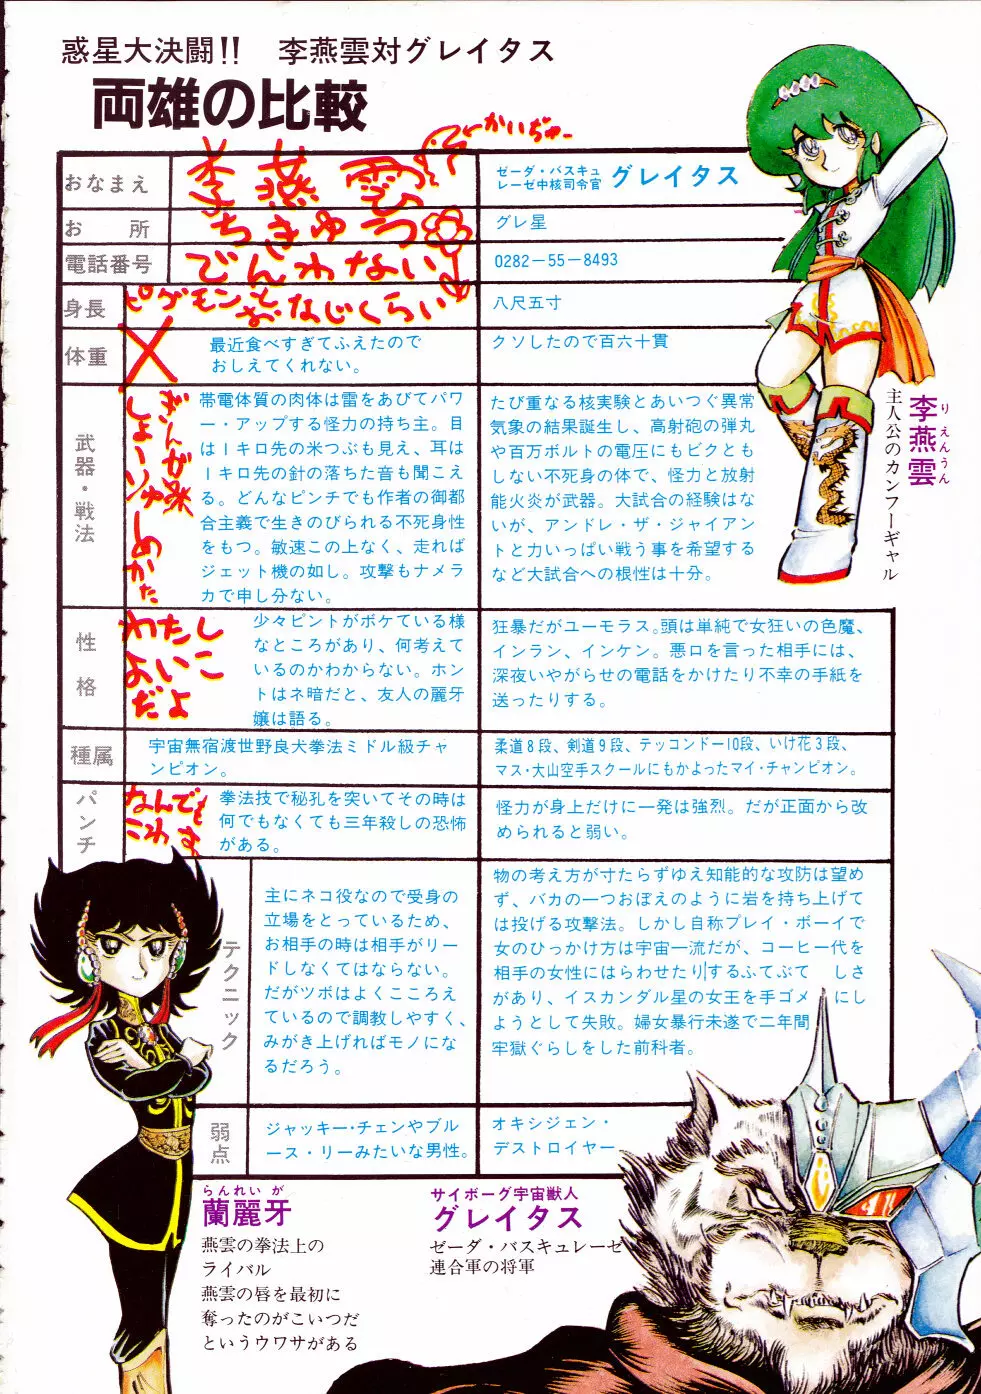 惑星大決闘!!　李燕雲対グレイタス
両雄の比較
おなまえ
李燕雲
←かいぢゅー
ゼーダ・バスキュ
レーゼ中核司令官 グレイタス
お所
ちきゅう
グレ星
電話番号
でんわない
0282-55-8493
身長
ピグモンとおなじくらい
八尺五寸
体重
最近食べすぎてふえたので
おしえてくれない。
クソしたので百六十貫
武器・戦法
ぎんが
しょーりゅー
しめかた
帯電体質の肉体は雷をあびてパワ
ー・アップする怪力の持ち主。目
は1キロ先の米つぶも見え、耳は
1キロ先の針の落ちた音も聞こえ
る。どんなピンチでも作者の御都
合主義で生きのびられる不死身性
をもつ。敏速この上なく、走れば
ジェット機の如し。攻撃もナメラ
カで申し分ない。
たび重なる核実験とあいつぐ異常
気象の結果誕生し、高射砲の弾丸
や百万ボルトの電圧にもビクとも
しない不死身の体で、怪力と放射
能火炎が武器。大試合の経験はな
いが、アンドレ・ザ・ジャイアン
トと力いっぱい戦う事を希望する
など大試合への根性は十分。
性格
わたし
よいこ
だよ
少々ピントがボケている様
なところがあり、何考えて
いるのかわからない。ホン
トはネ暗だと、友人の麗牙
嬢は語る。
狂暴だがユーモラス。頭は単純で女狂いの色魔、
インラン、インケン。悪口を言った相手には、
深夜いやがらせの電話をかけたり不幸の手紙を
送ったりする。
種属
宇宙無宿渡世野良犬拳法ミドル級チャ
ンピオン。
柔道8段、剣道9段、テッコンドー10段、いけ花3段、
マス・大山空手スクールにもかよったマイ・チャンピオン。
パンチ
なんでも
こわす
拳法技で秘孔を突いてその時は
何でもなくても三年殺しの恐怖
がある。
怪力が身上だけに一発は強烈。だが正面から改
められると弱い。
テクニック
主にネコ役なので受身の
立場をとっているため、
お相手の時は相手がリー
ドしなくてはならない。
だがツボはよくこころえ
ているので調教しやすく、
みがき上げればモノにな
るだろう。
物の考え方が寸たらずゆえ知能的な攻防は望め
ず、バカの一つおぼえのように岩を持ち上げて
は投げる攻撃法。しかし自称プレイ・ボーイで
女のひっかけ方は宇宙一流だが、コーヒー代を
相手の女性にはらわせたりするふてぶて　しさ
があり、イスカンダル星の女王を手ゴメ　にし
ようとして失敗。婦女暴行未遂で二年間
牢獄ぐらしをした前科者。
弱点
ジャッキー・チェンやブル
ース・リーみたいな男性。
オキシジェン・
デストロイヤー
りえんうん
李燕雲
主人公のカンフーギャル
らんれいが
蘭麗牙
燕雲の拳法上の
ライバル
燕雲の唇を最初に
奪ったのがこいつだ
というウワサがある
サイボーグ宇宙獣人
グレイタス
ゼーダ・バスキュレーゼ
連合軍の将軍